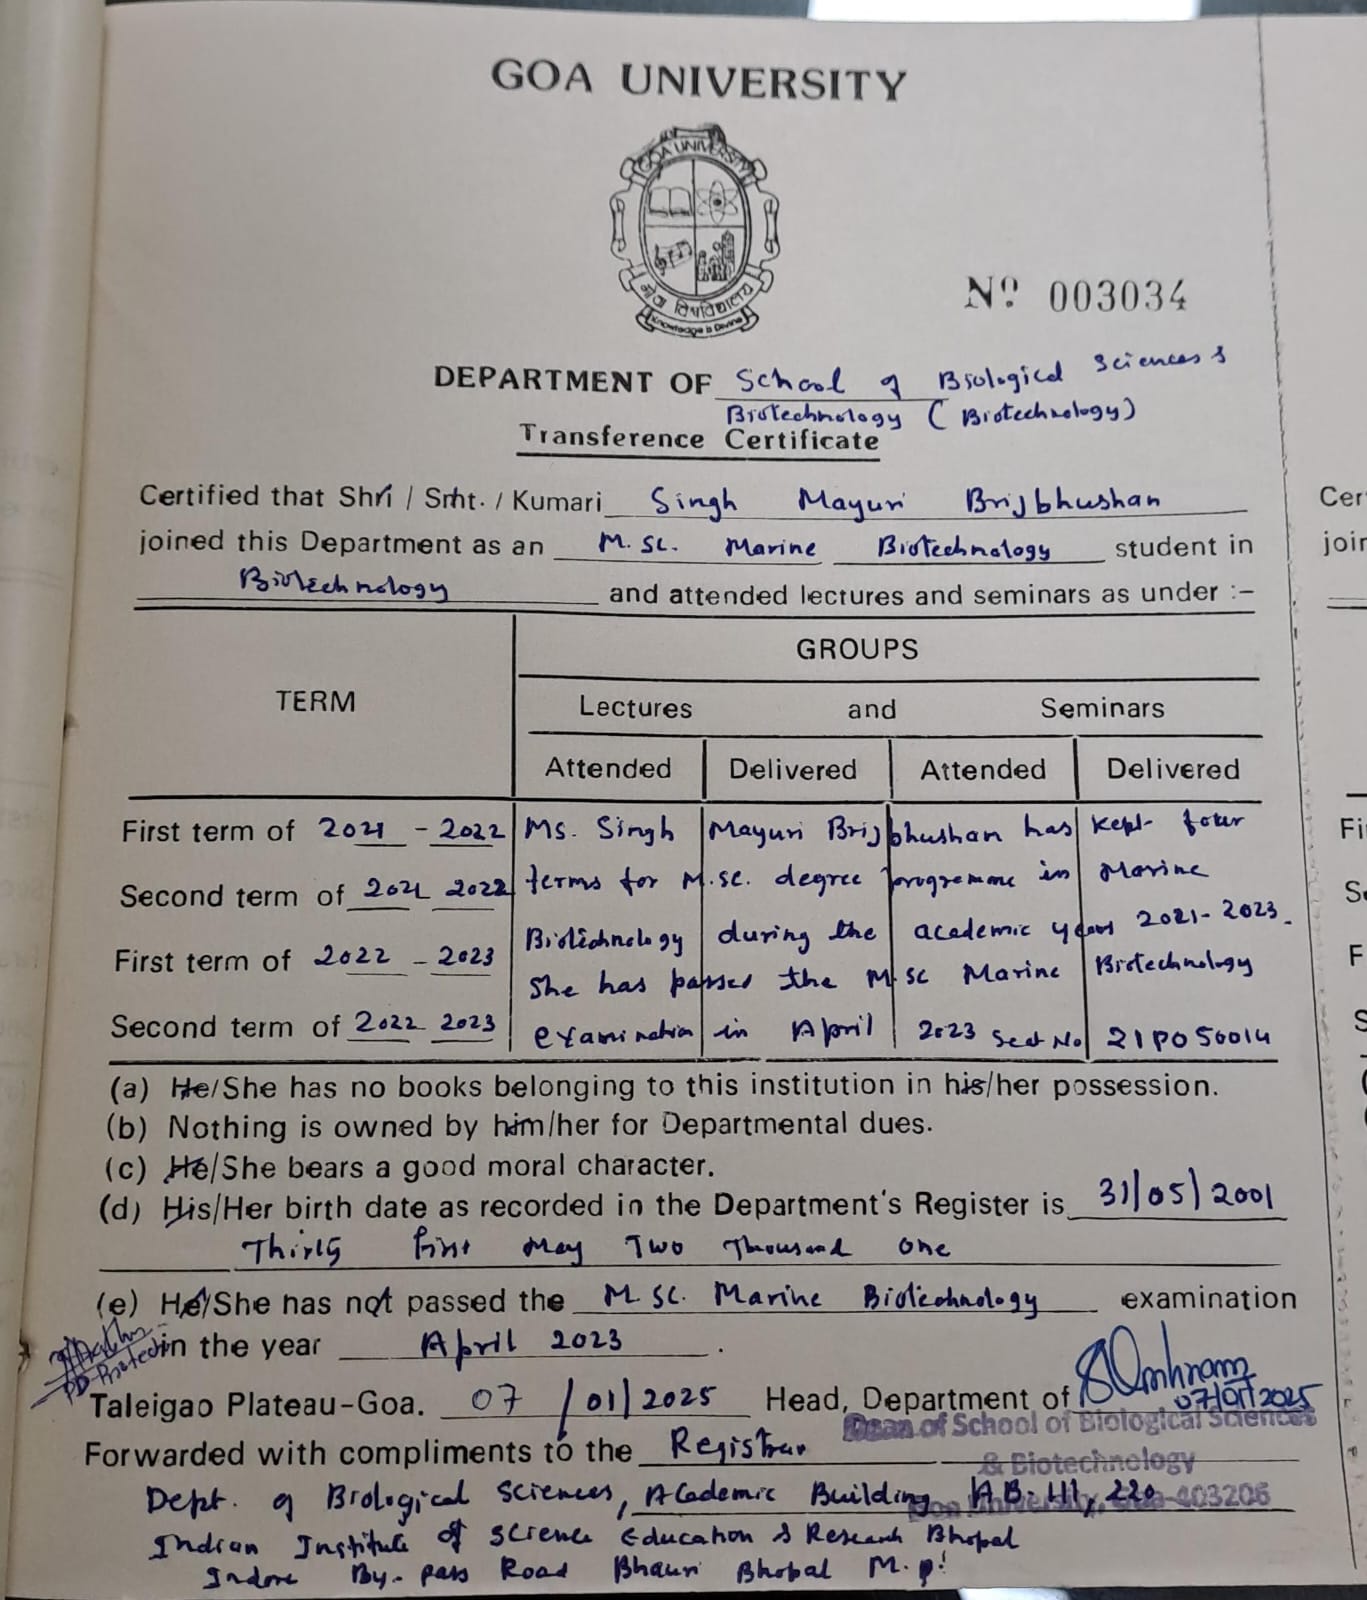 GOA UNIVERSITY
GOA UNIVERSITY
गोंय विश्वविद्यालय
Knowledge is Divine
Nº 003034
DEPARTMENT OF School of Biological Sciences &
Biotechnology (Biotechnology)
Transference Certificate
Certified that Shri / Smt. / Kumari Singh Mayuri Brijbhushan
joined this Department as an M.Sc. Marine Biotechnology student in
Biotechnology and attended lectures and seminars as under :-
GROUPS
TERM
Lectures and Seminars
Attended Delivered Attended Delivered
First term of 2021 - 2022 Ms. Singh Mayuri Brijbhushan has kept four
Second term of 2021 2022 terms for M.Sc. degree programme in Marine
First term of 2022 - 2023 Biotechnology during the academic years 2021-2023.
She has passed the M.Sc Marine Biotechnology
Second term of 2022 2023 examination in April 2023 Seat No 21P050014
(a) He/She has no books belonging to this institution in his/her possession.
(b) Nothing is owned by him/her for Departmental dues.
(c) He/She bears a good moral character.
(d) His/Her birth date as recorded in the Department's Register is 31/05/2001
Thirty first May Two Thousand One
(e) He/She has not passed the M.Sc. Marine Biotechnology examination
in the year April 2023.
PD-Biotech
Taleigao Plateau-Goa. 07/01/2025 Head, Department of
07/01/2025
Dean of School of Biological Sciences
& Biotechnology
Goa University, Goa-403206
Forwarded with compliments to the Registrar
Dept. of Biological Sciences, Academic Building AB-III, 220
Indian Institute of Science Education & Research Bhopal
Indore By-pass Road Bhauri Bhopal M.P.
Cer
join
Fi
F